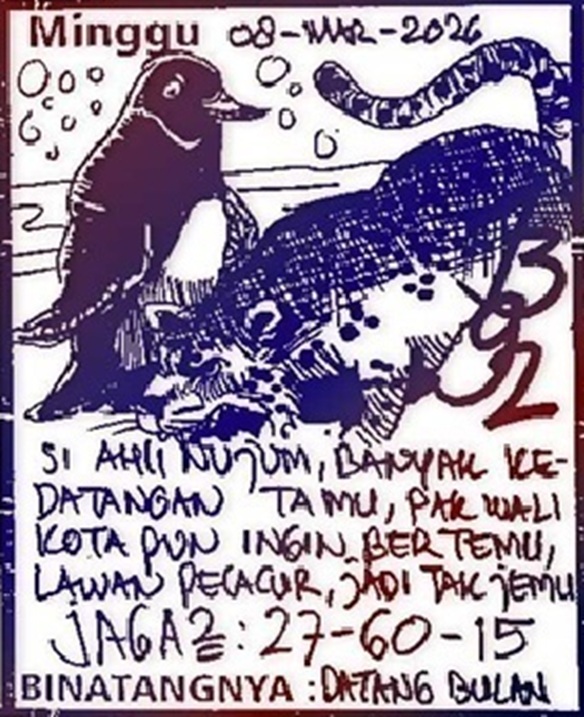 Minggu 08-MAR-2026
B
9
2
SI AHLI NUJUM, BANYAK KE-
DATANGAN TAMU, PAK WALI
KOTA PUN INGIN BERTEMU,
LAWAN PECACUR, JADI TAK JEMU
JAGA2 : 27-60-15
BINATANGNYA : DATANG BULAN